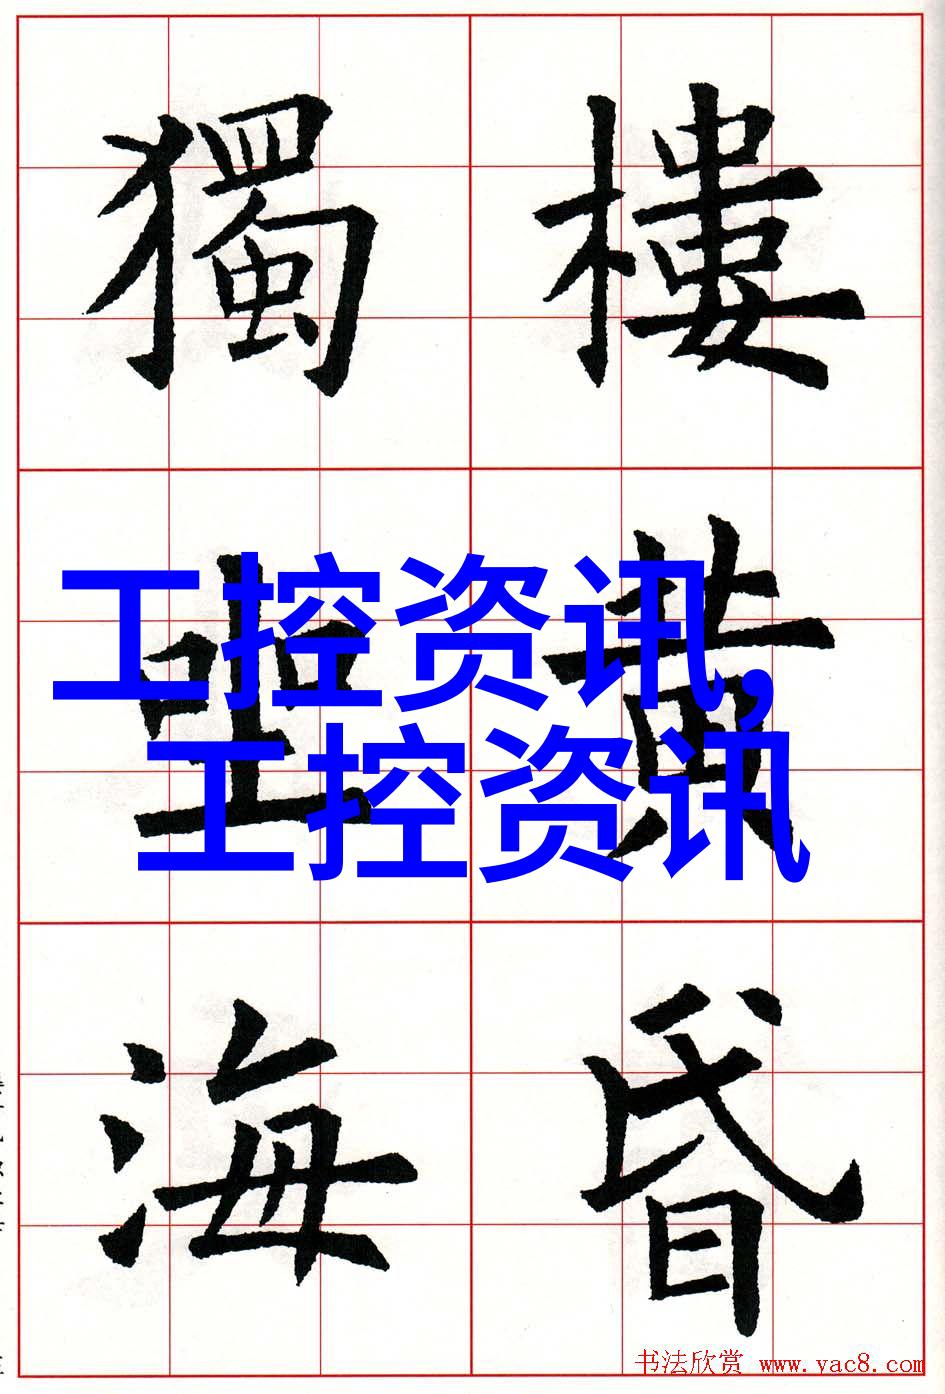 樓黄昏
獨坐海
工控资讯,
工控资讯
书法欣赏 www.yac8.com